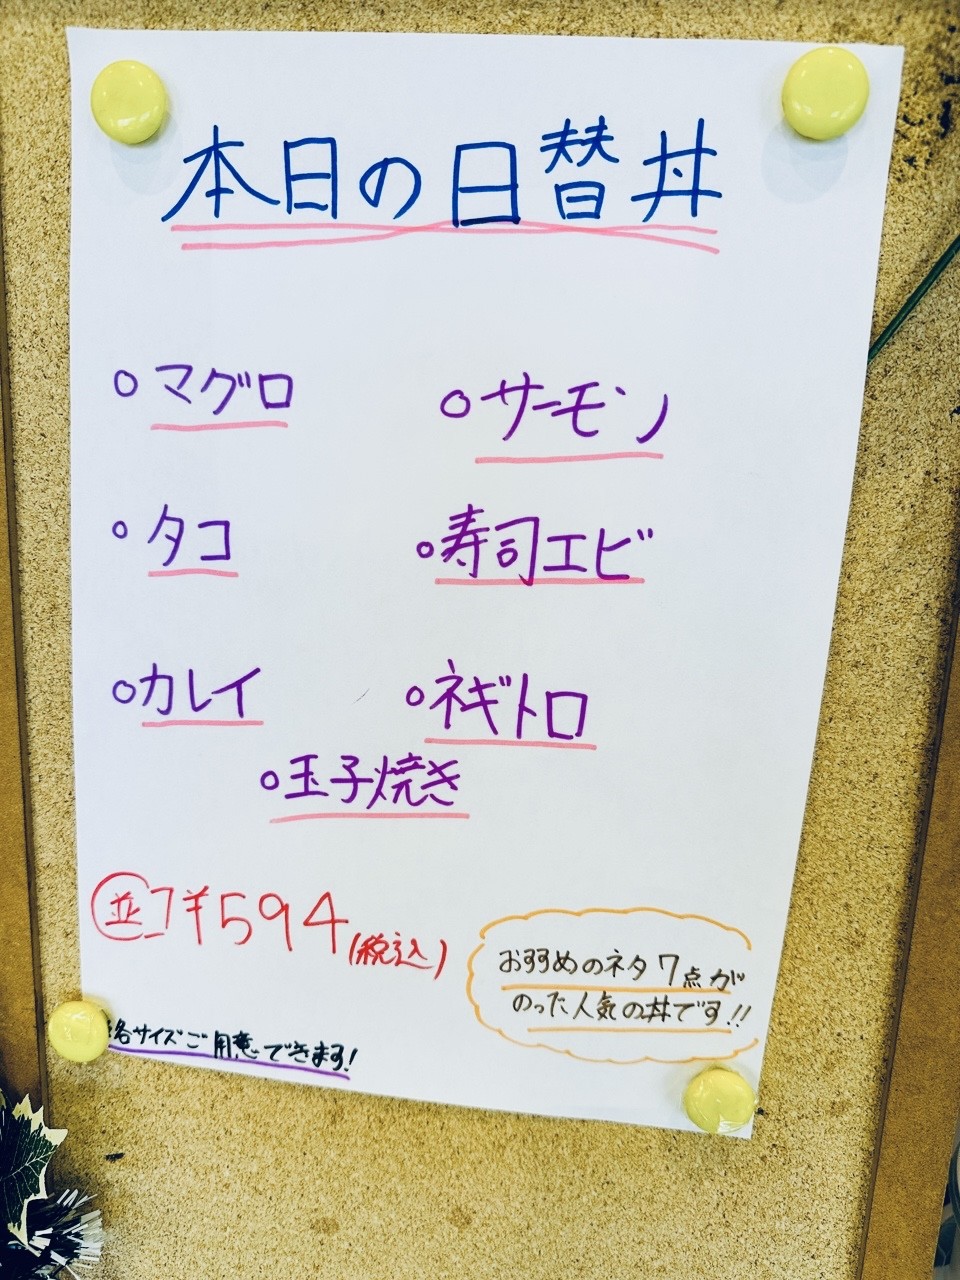 本日の日替丼
○マグロ
○サーモン
○タコ
○寿司エビ
○カレイ
○ネギトロ
○玉子焼き
並 ¥594(税込)
おすすめのネタ7点が
のった人気の丼です!!
各サイズご用意できます!